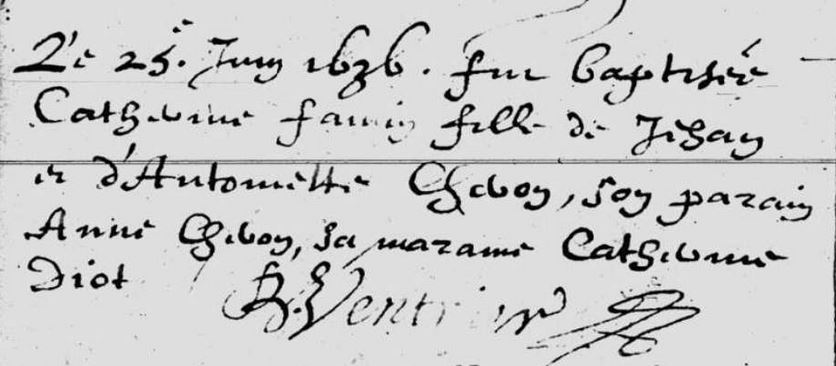 Le 25e. Juin 1636. fut baptisée
Catherine famin fille de Jehan
et d'Antoinette Chevon, son parain
Anne Chevon, sa maraine Catherine
Diot